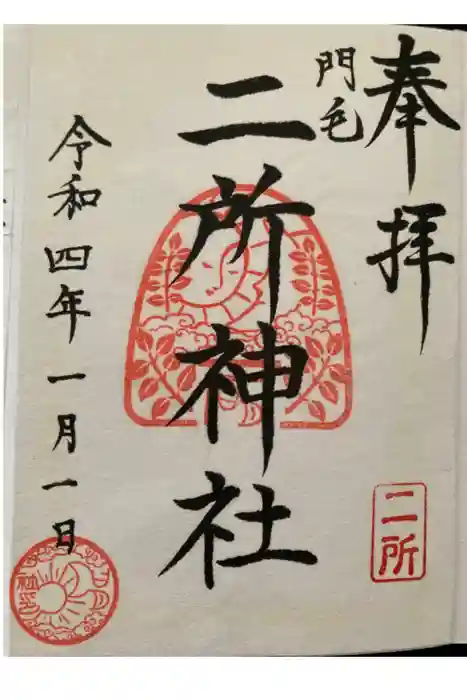 奉拝
門毛
二所神社
令和四年一月一日
二所
社印